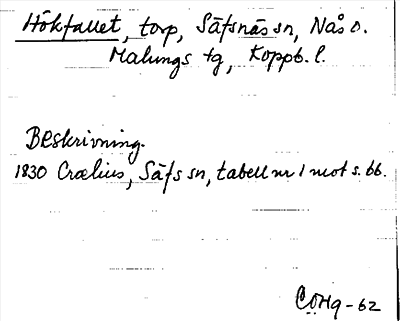 Hökfallet, torp, Säfsnäs sn, Nås o.
Malungs tg, Koppb. l.
Beskrivning.
1830 Crælius, Säfs sn, tabell nr 1 mot s. 66.
COHg-62